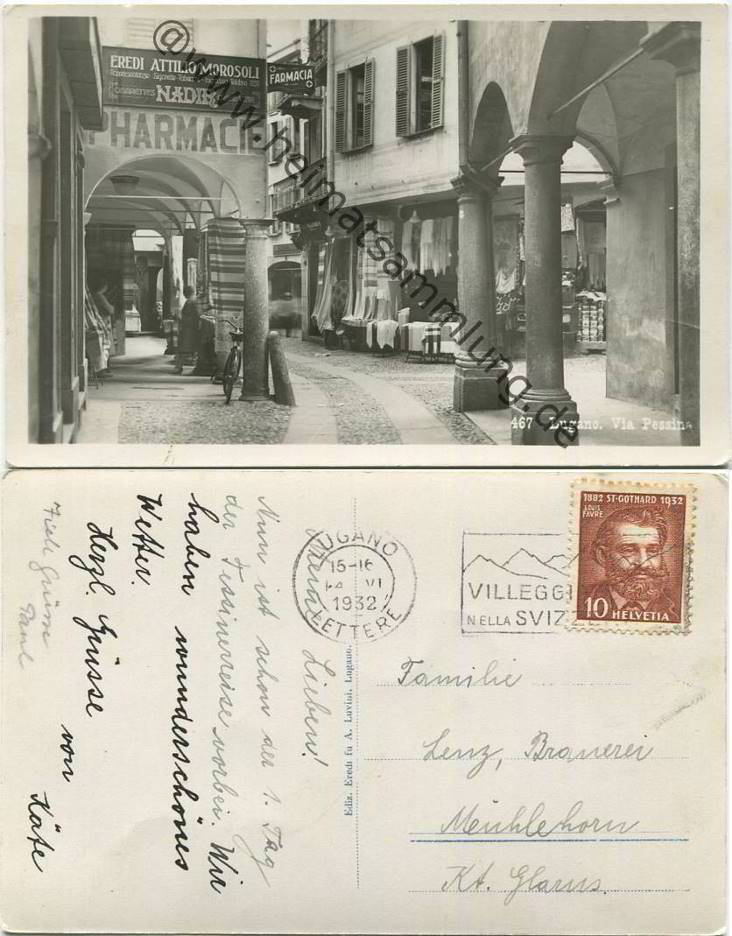 EREDI ATTILIO MOROSOLI
NADIR
FARMACIA
PHARMACIE
@www.heimatsammlung.de
467 Lugano. Via Pessina
Meine Lieben!
Nun ist schon der 1. Tag
der Tessinerreise vorbei. Wir
haben wunderschönes
Wetter.
Herzl. Grüsse
von Käte
Paul
Ediz. Eredi fu A. Luvini, Lugano.
LUGANO
15-16
VI
1932
LETTERE
VILLEGGI
NELLA SVIZZE
1882 ST-GOTHARD 1932
LOUIS
FAVRE
10 HELVETIA
Familie
Lenz, Brauerei
Mühlehorn
Kt. Glarus.